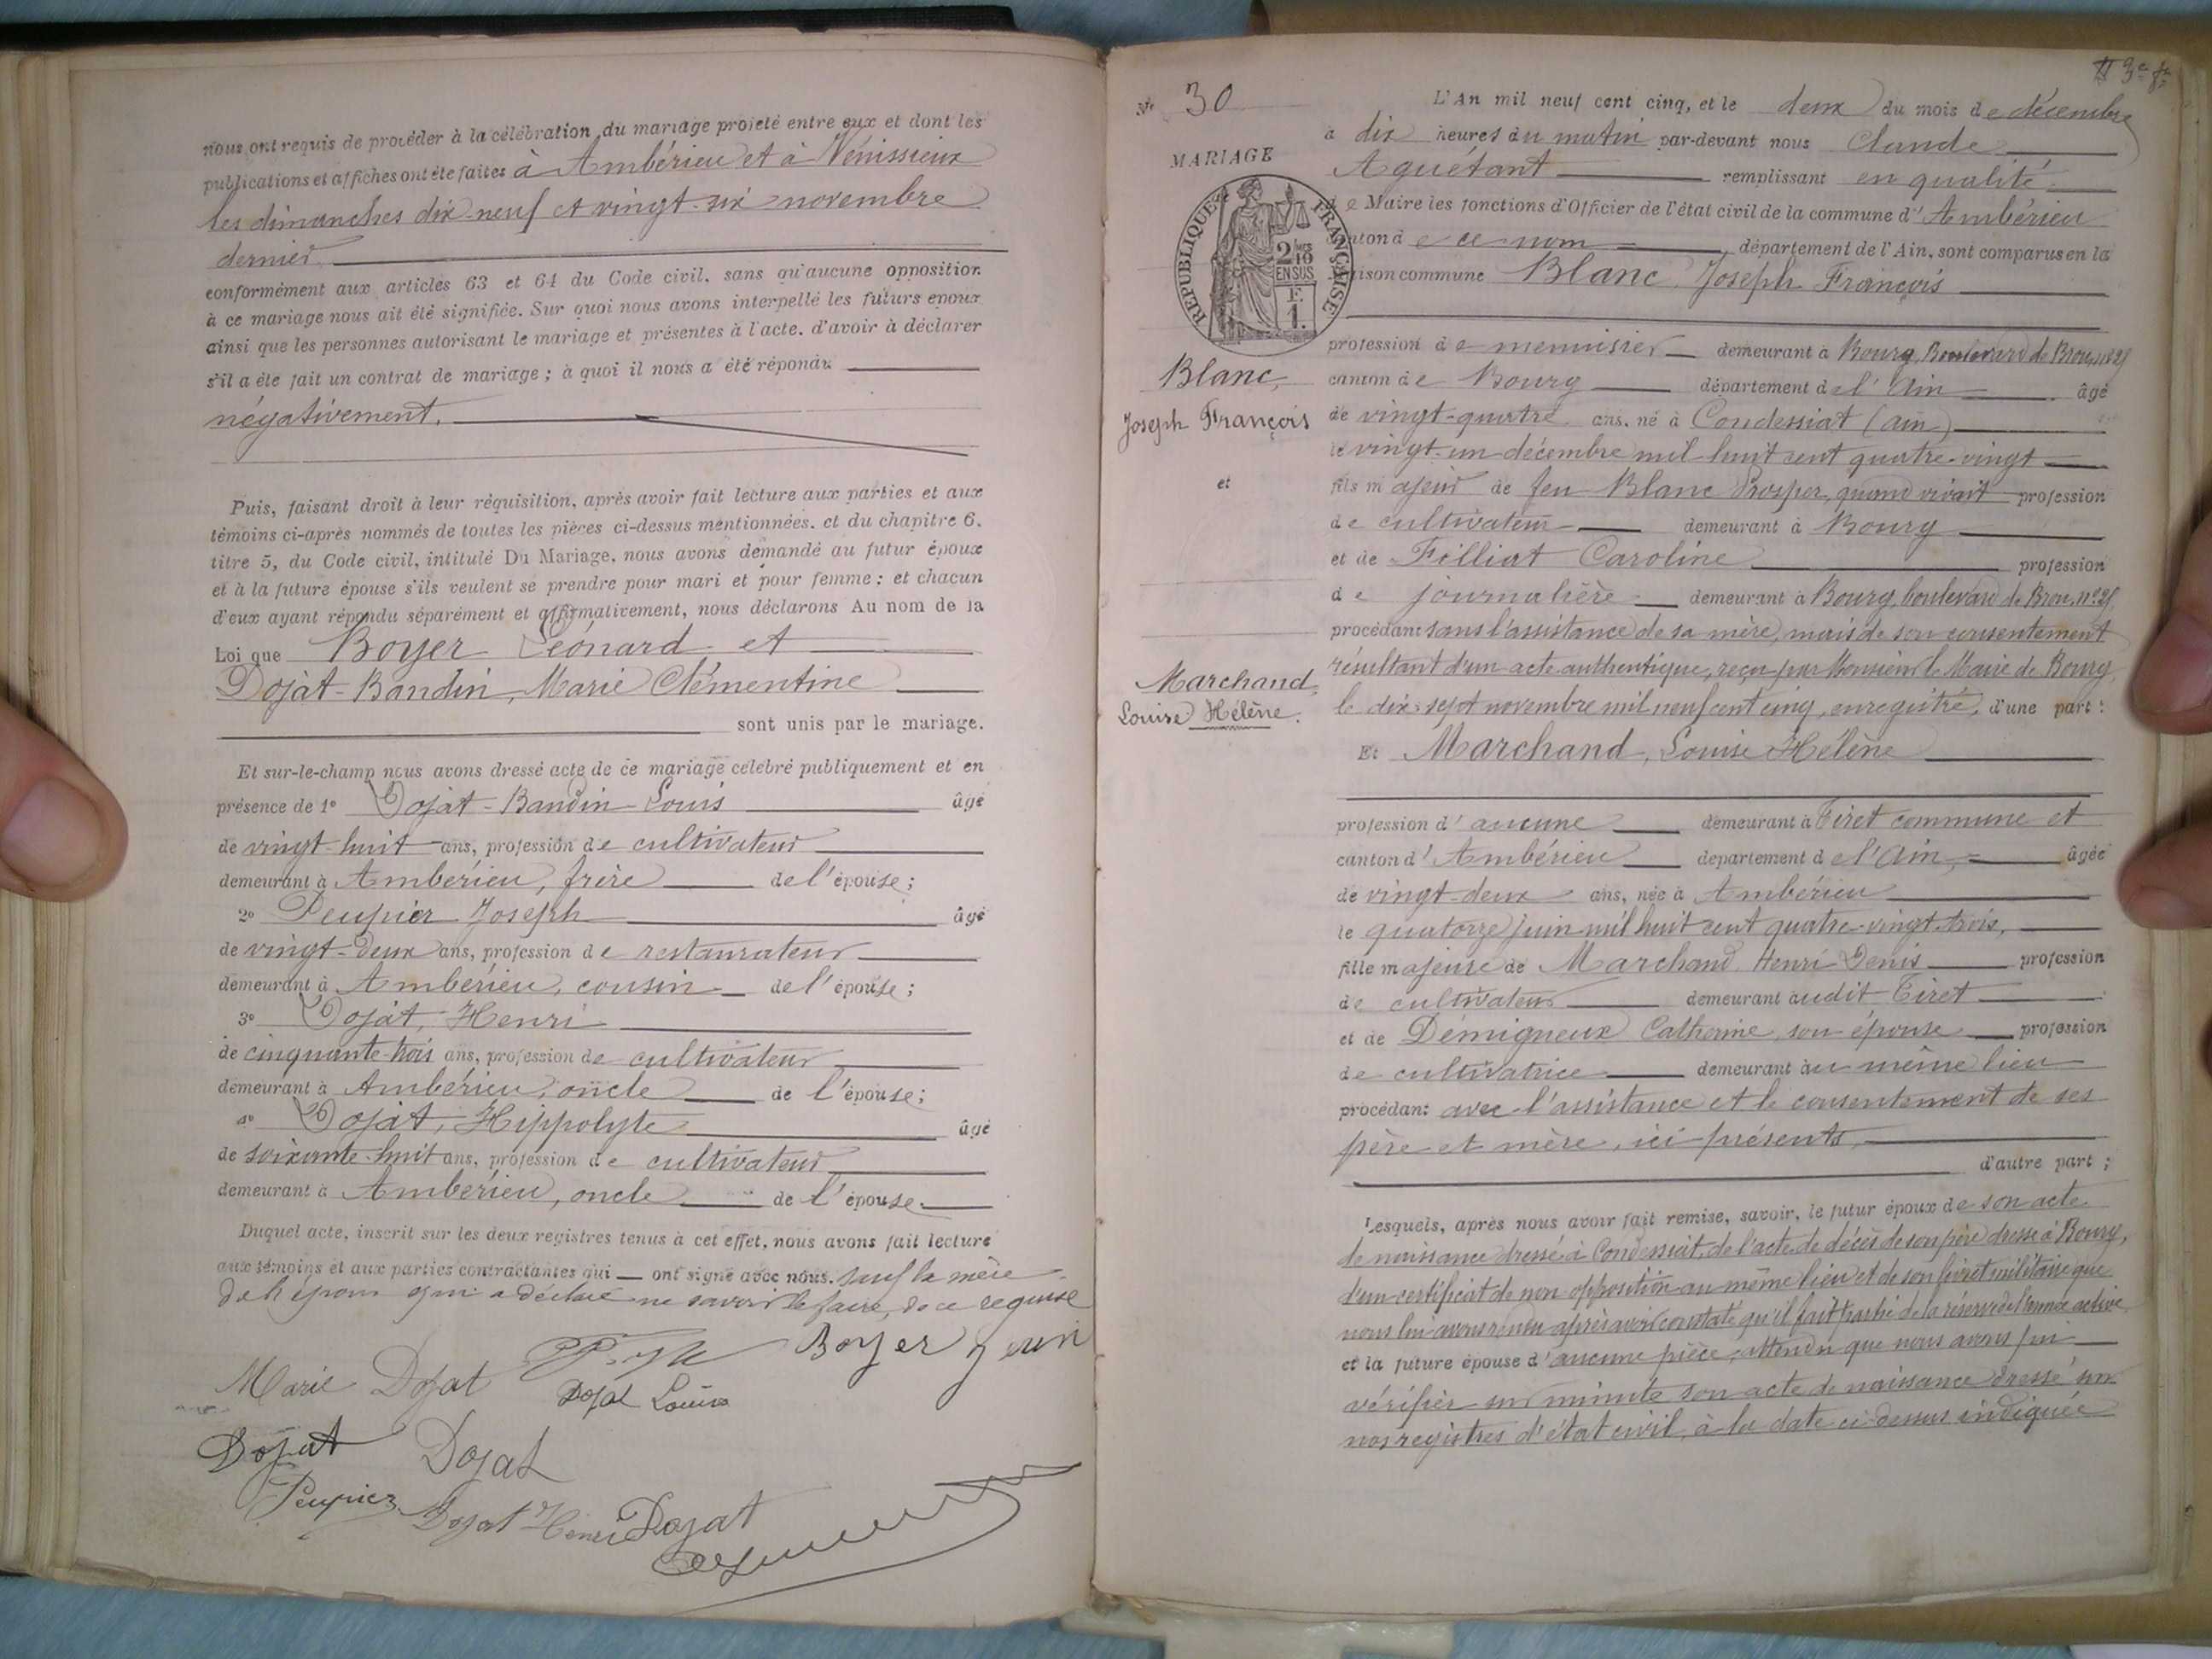 nous ont requis de procéder à la célébration du mariage projeté entre eux et dont les
publications et affiches ont été faites à Ambérieu et à Vénissieux
les dimanches dix-neuf et vingt-six novembre
dernier
conformément aux articles 63 et 64 du Code civil, sans qu'aucune opposition
à ce mariage nous ait été signifiée. Sur quoi nous avons interpellé les futurs époux
ainsi que les personnes autorisant le mariage et présentes à l'acte, d'avoir à déclarer
s'il a été fait un contrat de mariage ; à quoi il nous a été répondu
négativement.
Puis, faisant droit à leur réquisition, après avoir fait lecture aux parties et aux
témoins ci-après nommés de toutes les pièces ci-dessus mentionnées, et du chapitre 6,
titre 5, du Code civil, intitulé Du Mariage, nous avons demandé au futur époux
et à la future épouse s'ils veulent se prendre pour mari et pour femme ; et chacun
d'eux ayant répondu séparément et affirmativement, nous déclarons Au nom de la
Loi que Boyer Léonard et
Dojat-Bandin, Marie Clémentine
sont unis par le mariage.
Et sur-le-champ nous avons dressé acte de ce mariage célébré publiquement et en
présence de 1° Dojat-Bandin-Louis âgé
de vingt-huit ans, profession de cultivateur
demeurant à Ambérieu, frère de l'épouse ;
2° Peupier Joseph âgé
de vingt-deux ans, profession de restaurateur
demeurant à Ambérieu, cousin de l'épouse ;
3° Dojat, Henri
de cinquante-trois ans, profession de cultivateur
demeurant à Ambérieu, oncle de l'épouse ;
4° Dojat, Hippolyte âgé
de soixante-huit ans, profession de cultivateur
demeurant à Ambérieu, oncle de l'épouse.
Duquel acte, inscrit sur les deux registres tenus à cet effet, nous avons fait lecture
aux témoins et aux parties contractantes qui ont signé avec nous. sauf la mère
de l'époux qui a déclaré ne savoir le faire, de ce requise
Boyer Jean
Marie Dojat Dojat Louis
Dojat Dojat
Peupier Dojat Henri Dojat
3e ft
N° 30
MARIAGE
REPUBLIQUE FRANÇAISE
2/10 EN SUS
F. 1.
Blanc,
Joseph François
et
Marchand,
Louise Hélène.
L'An mil neuf cent cinq, et le deux du mois de décembre
à dix heures du matin par-devant nous Claude
Aguétant remplissant en qualité
de Maire les fonctions d'Officier de l'état civil de la commune d'Ambérieu
canton de ce nom département de l'Ain, sont comparus en la
maison commune Blanc, Joseph François
profession de menuisier demeurant à Bourg, Boulevard de Brou, n° 21
canton de Bourg département de l'Ain âgé
de vingt-quatre ans, né à Condessiat (Ain)
le vingt-un décembre mil huit cent quatre-vingt
fils majeur de feu Blanc Prosper, quand vivait profession
de cultivateur demeurant à Bourg
et de Filliat Caroline profession
de journalière demeurant à Bourg, boulevard de Brou, n° 21,
procédant sans l'assistance de sa mère, mais de son consentement
résultant d'un acte authentique, reçu par Monsieur le Maire de Bourg
le dix-sept novembre mil neuf cent cinq, enregistré, d'une part :
Et Marchand, Louise Hélène
profession d'aucune demeurant à Tiret commune et
canton d'Ambérieu département de l'Ain, âgée
de vingt-deux ans, née à Ambérieu
le quatorze juin mil huit cent quatre-vingt-trois,
fille majeure de Marchand Henri Denis profession
de cultivateur demeurant audit Tiret
et de Démigneux Catherine, son épouse profession
de cultivatrice demeurant au même lieu
procédant avec l'assistance et le consentement de ses
père et mère, ici présents,
d'autre part ;
Lesquels, après nous avoir fait remise, savoir, le futur époux de son acte
de naissance dressé à Condessiat, de l'acte de décès de son père dressé à Bourg,
d'un certificat de non opposition au même lieu et de son livret militaire que
nous lui avons rendu après avoir constaté qu'il fait partie de la réserve de l'armée active,
et la future épouse d'aucune pièce, attendu que nous avons pu
vérifier sur minute son acte de naissance dressé sur
nos registres d'état civil, à la date ci-dessus indiquée